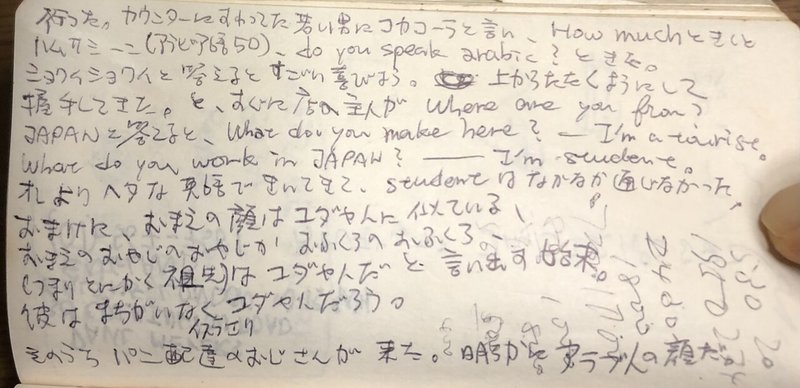 行った。カウンターにすわってた若い男にコカコーラと言い、How muchときくと
ハムサミーニ(アラビア語50)、do you speak arabic?ときた。
ショワイショワイと答えるとすごい喜びよう。上からたたくようにして
握手してきた。と、すぐに店の主人が Where are you from?
JAPANと答えると、What do you make here? — I'm a tourist.
What do you work in JAPAN? —— I'm student.
オレよりヘタな英語できいてきて、studentはなかなか通じなかった
おまけに、おまえの顔はユダヤ人に似ている、
おまえのおやじのおやじか おふくろのおふくろ、
(つまりとにかく祖先)はユダヤ人だと言い出す始末。
彼はまちがいなくユダヤ人だろう。
そのうちパン配達のおじさんが来た。明らかにアラブ人の顔だ。
530
1950
2480